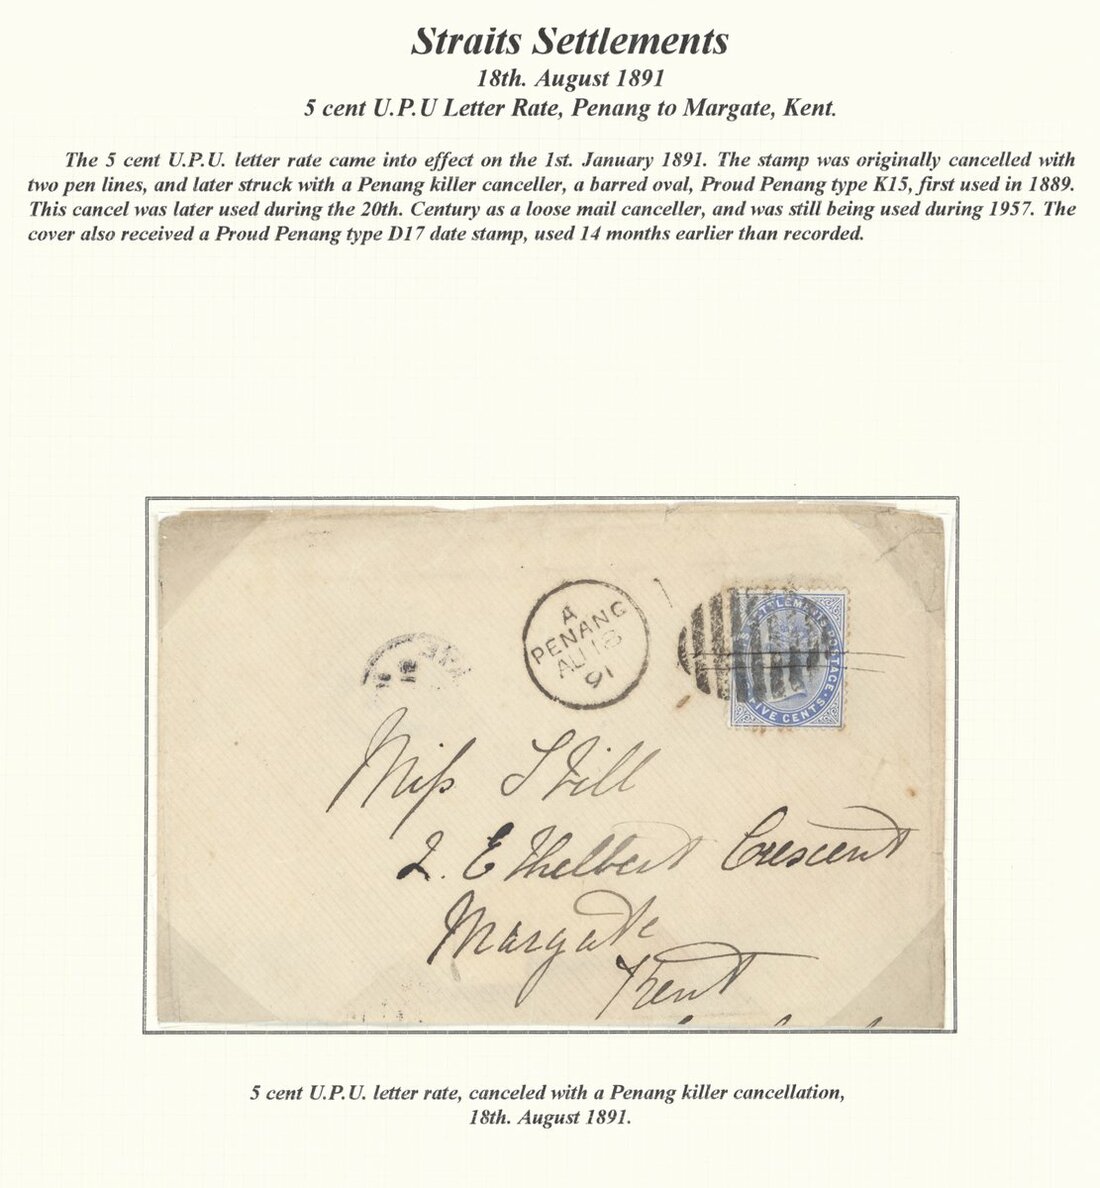 Straits Settlements
18th. August 1891
5 cent U.P.U Letter Rate, Penang to Margate, Kent.
The 5 cent U.P.U. letter rate came into effect on the 1st. January 1891. The stamp was originally cancelled with
two pen lines, and later struck with a Penang killer canceller, a barred oval, Proud Penang type K15, first used in 1889.
This cancel was later used during the 20th. Century as a loose mail canceller, and was still being used during 1957. The
cover also received a Proud Penang type D17 date stamp, used 14 months earlier than recorded.
A
PENANG
AU 18
91
SETTLEMENTS POSTAGE
FIVE CENTS
Miss Still
2. Ethelbert Crescent
Margate
Kent
5 cent U.P.U. letter rate, canceled with a Penang killer cancellation,
18th. August 1891.